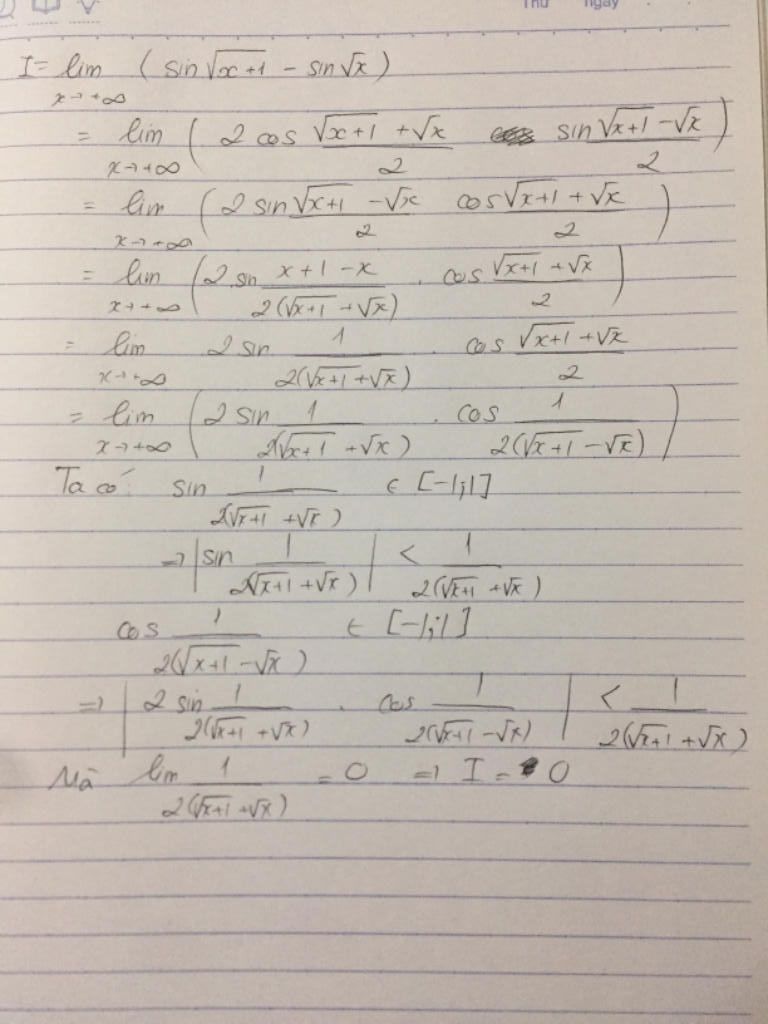 Thứ ngày
I = lim (sin√(x+1) - sin√x)
x→+∞
= lim ( 2 cos (√(x+1) + √x)/2 sin (√(x+1) - √x)/2 )
x→+∞
= lim ( 2 sin (√(x+1) - √x)/2 cos (√(x+1) + √x)/2 )
x→+∞
= lim ( 2 sin (x+1-x)/(2(√(x+1) + √x)) . cos (√(x+1) + √x)/2 )
x→+∞
= lim 2 sin 1/(2(√(x+1) + √x)) . cos (√(x+1) + √x)/2
x→+∞
= lim ( 2 sin 1/(2(√(x+1) + √x)) . cos 1/(2(√(x+1) - √x)) )
x→+∞
Ta có: sin 1/(2(√(x+1) + √x)) ∈ [-1;1]
=> |sin 1/(2(√(x+1) + √x))| < 1/(2(√(x+1) + √x))
cos 1/(2(√(x+1) - √x)) ∈ [-1;1]
=> |2 sin 1/(2(√(x+1) + √x)) . cos 1/(2(√(x+1) - √x))| < 1/(2(√(x+1) + √x))
Mà lim 1/(2(√(x+1) + √x)) = 0 => I = 0